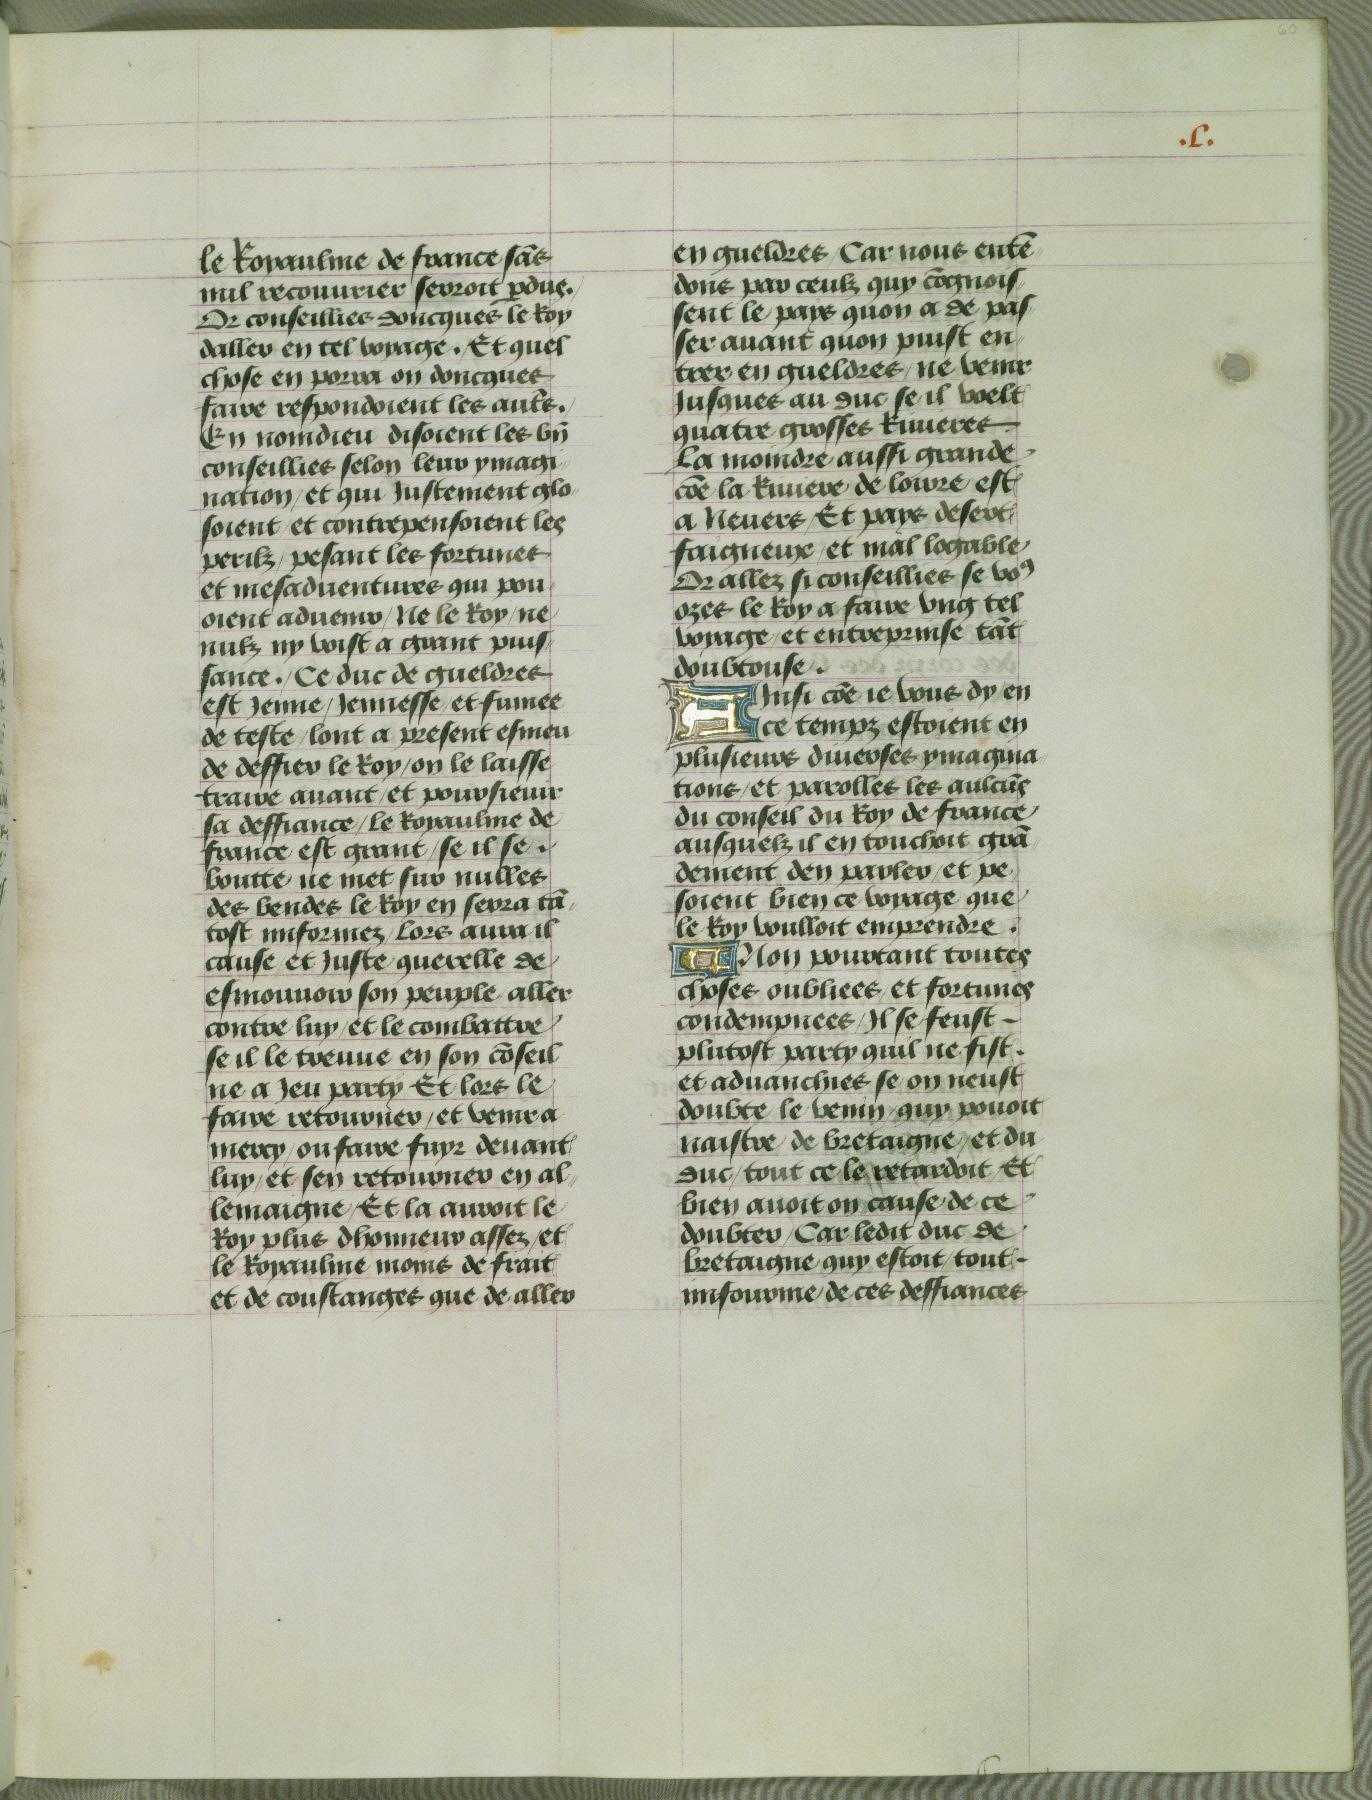 60
.L.
le Royaulme de france sãs
nul recouurier seroit pdus.
Or conseillies doncques le Roy
daller en tel voyage. Et quel
chose en porra on doncques
faire respondoient les autẽs.
En nomdieu disoient les vñ
conseillies selon leur ymagi
nation/ et qui Justement glo
soient et contrepensoient les
perilz/ pesant les fortunes
et mesaduentures qui pou
oient aduenir/ Ne le Roy/ ne
nulz ny voist a grant puis
sance. / Ce duc de gueldres
est Jenne/ Jennesse et fumee
de teste/ lont a present esmeu
de deffier le Roy/ on le laisse
traire auant/ et poursieuir
sa deffiance/ le Royaulme de
france est grant/ se il se .
boutte ne met sur nulles
des bendes le Roy en sera tã
tost informez/ Lors aura il
cause et Juste querelle de
esmouuoir son peuple aller
contre luy/ et le combattre
se il le treuue en son cõseil
ne a Jeu party Et lors le
faire retourner/ et venir a
mercy/ ou faire fuyr deuant
luy/ et sen retourner en al
lemaigne/ Et la auroit le
Roy plus dhonneur assez/ et
le Royaulme moins de frait
et de coustanges que de aller
en gueldres/ Car nous entẽ
dons par ceulz quy cõgnois
sent le pays quon a de pas
ser auant quon puist en
trer en gueldres/ ne venir
Jusques au duc se il voelt
quatre grosses Riuieres
La moindre aussi grande
cõe la Riuiere de loirre est
a Neuers/ Et pays desert
faigneux/ et mal logable
Or allez si conseillies se voꝰ
ozes le Roy a faire vng tel
voyage/ et entreprinse tãt
doubteuse .
Ainsi cõe ie vous dy en
ce tempz estoient en
plusieurs diuerses ymagina
tions/ et parolles les aulcũs
du conseil du Roy de france
ausquelz il en touchoit grã
dement den parler/ et pe
soient bien ce voyage que
le Roy voulloit emprendre .
Non pourtant toutes
choses oubliees et fortunes
condempnees/ Il se feust
plutost party quil ne fist.
et aduanchies se on neust
doubte le venin/ quy pouoit
naistre de bretaigne/ et du
duc/ tout ce le retardoit Et
bien auoit on cause de ce
doubter/ Car ledit duc de
bretaigne quy estoit/ tout
infourme de ces deffiances